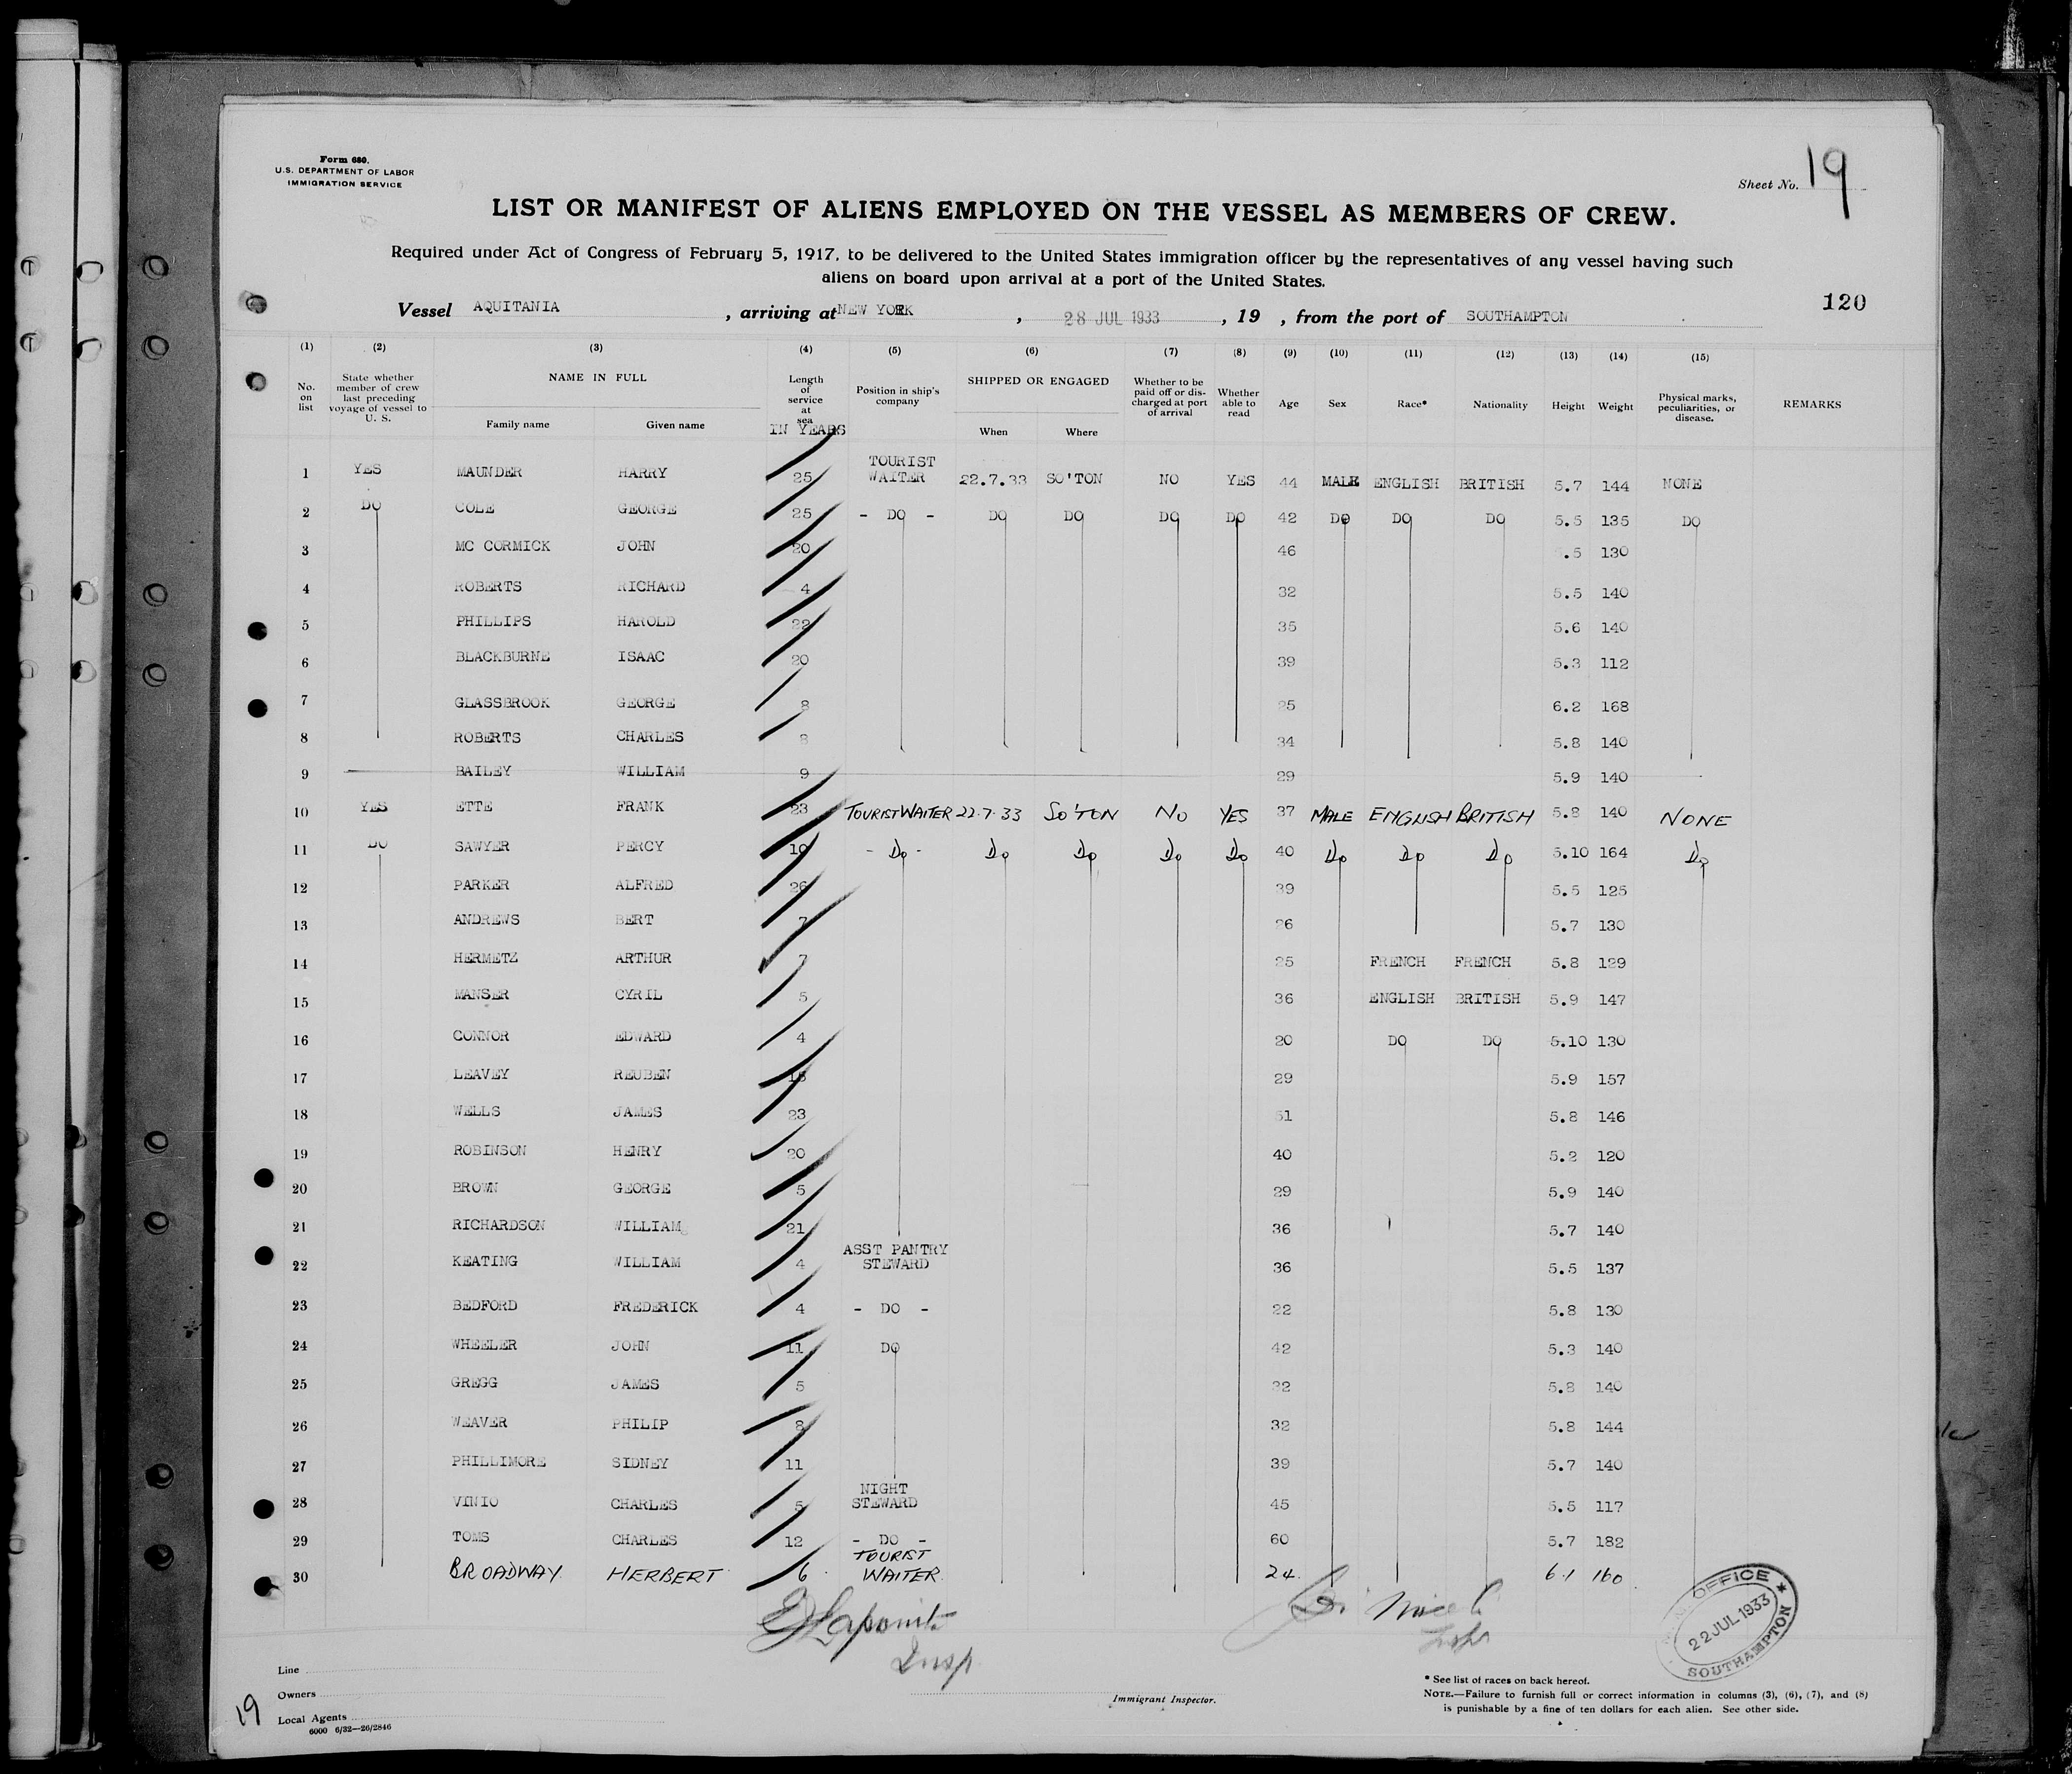 Form 680.
U.S. DEPARTMENT OF LABOR
IMMIGRATION SERVICE
Sheet No. 19
LIST OR MANIFEST OF ALIENS EMPLOYED ON THE VESSEL AS MEMBERS OF CREW.
Required under Act of Congress of February 5, 1917, to be delivered to the United States immigration officer by the representatives of any vessel having such
aliens on board upon arrival at a port of the United States.
120
Vessel AQUITANIA , arriving at NEW YORK , 28 JUL 1933 , 19 , from the port of SOUTHAMPTON
(1) (2) (3) (4) (5) (6) (7) (8) (9) (10) (11) (12) (13) (14) (15)
No. on list State whether member of crew last preceding voyage of vessel to U. S. NAME IN FULL Length of service at sea IN YEARS Position in ship's company SHIPPED OR ENGAGED Whether to be paid off or discharged at port of arrival Whether able to read Age Sex Race* Nationality Height Weight Physical marks, peculiarities, or disease. REMARKS
Family name Given name When Where
1 YES MAUNDER HARRY 25 TOURIST WAITER 22.7.33 SO'TON NO YES 44 MALE ENGLISH BRITISH 5.7 144 NONE
2 DO COLE GEORGE 25 - DO - DO DO DO DO 42 DO DO DO 5.5 135 DO
3 MC CORMICK JOHN 20 46 .5 130
4 ROBERTS RICHARD 4 32 5.5 140
5 PHILLIPS HAROLD 22 35 5.6 140
6 BLACKBURNE ISAAC 20 39 5.3 112
7 GLASSBROOK GEORGE 8 25 6.2 168
8 ROBERTS CHARLES 8 34 5.8 140
9 BAILEY WILLIAM 9 29 5.9 140
10 YES ETTE FRANK 23 TOURIST WAITER 22.7.33 SO'TON NO YES 37 MALE ENGLISH BRITISH 5.8 140 NONE
11 DO SAWYER PERCY 10 - Do - Do Do Do Do 40 Do Do Do 5.10 164 Do
12 PARKER ALFRED 26 39 5.5 125
13 ANDREWS BERT 7 26 5.7 130
14 HERMETZ ARTHUR 7 25 FRENCH FRENCH 5.8 129
15 MANSER CYRIL 5 36 ENGLISH BRITISH 5.9 147
16 CONNOR EDWARD 4 20 DO DO 5.10 130
17 LEAVEY REUBEN 29 5.9 157
18 WELLS JAMES 23 51 5.8 146
19 ROBINSON HENRY 20 40 5.2 120
20 BROWN GEORGE 5 29 5.9 140
21 RICHARDSON WILLIAM 21 36 5.7 140
22 KEATING WILLIAM 4 ASST PANTRY STEWARD 36 5.5 137
23 BEDFORD FREDERICK 4 - DO - 22 5.8 130
24 WHEELER JOHN 11 DO 42 5.3 140
25 GREGG JAMES 5 32 5.8 140
26 WEAVER PHILIP 8 32 5.8 144
27 PHILLIMORE SIDNEY 11 39 5.7 140
28 VINIO CHARLES 5 NIGHT STEWARD 45 5.5 117
29 TOMS CHARLES 12 - DO - 60 5.7 182
30 BROADWAY HERBERT 6 TOURIST WAITER 24 6.1 160
Insp
OFFICE
22 JUL 1933
SOUTHAMPTON
Line
Owners
Local Agents
6000 6/32—26/2846
19
Immigrant Inspector.
* See list of races on back hereof.
NOTE.—Failure to furnish full or correct information in columns (3), (6), (7), and (8)
is punishable by a fine of ten dollars for each alien. See other side.